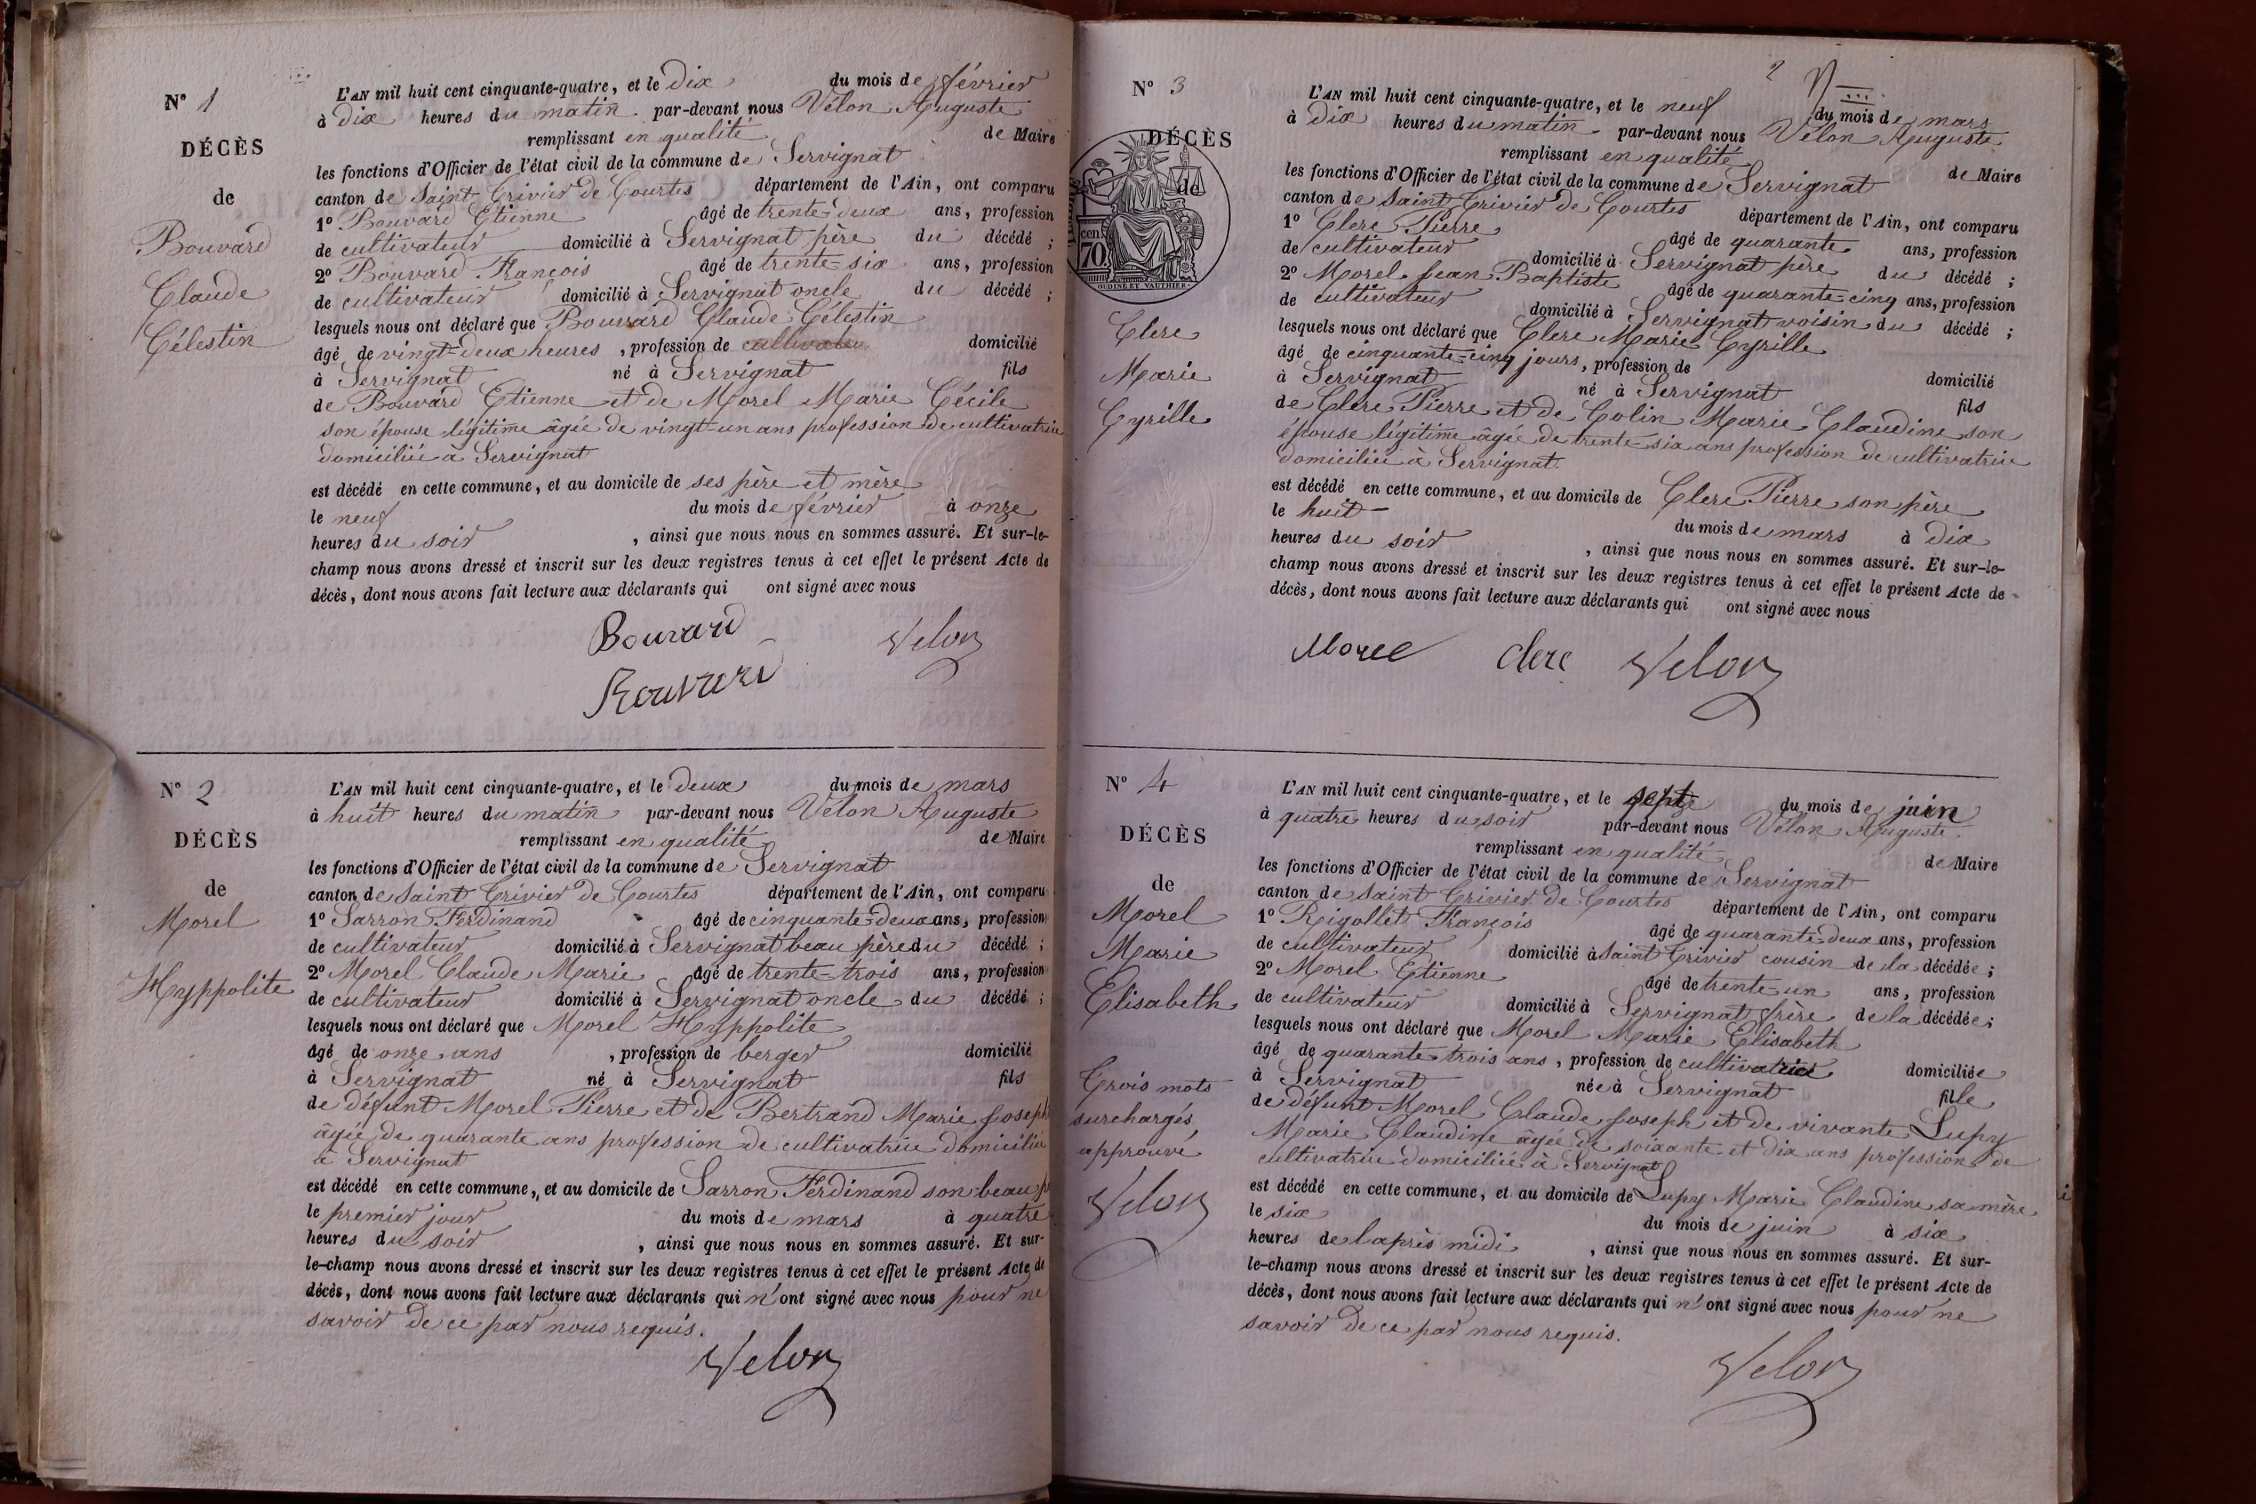 N° 1
DÉCÈS
de
Bouvard
Claude
Célestin
L'AN mil huit cent cinquante-quatre, et le dix du mois de février
à dix heures du matin par-devant nous Vélon Auguste
remplissant en qualité de Maire
les fonctions d'Officier de l'état civil de la commune de Servignat
canton de Saint Trivier de Courtes département de l'Ain, ont comparu
1° Bouvard Etienne âgé de trente-deux ans, profession
de cultivateur domicilié à Servignat père du décédé ;
2° Bouvard François âgé de trente-six ans, profession
de cultivateur domicilié à Servignat oncle du décédé ;
lesquels nous ont déclaré que Bouvard Claude Célestin
âgé de vingt-deux heures , profession de domicilié
à Servignat né à Servignat fils
de Bouvard Etienne et de Morel Marie Cécile
son épouse légitime âgée de vingt-un ans profession de cultivatrice
domiciliée à Servignat
est décédé en cette commune, et au domicile de ses père et mère
le neuf du mois de février à onze
heures du soir , ainsi que nous nous en sommes assuré. Et sur-le-
champ nous avons dressé et inscrit sur les deux registres tenus à cet effet le présent Acte de
décès, dont nous avons fait lecture aux déclarants qui ont signé avec nous
Bouvard Velon
Bouvard
N° 2
DÉCÈS
de
Morel
Hyppolite
L'AN mil huit cent cinquante-quatre, et le deux du mois de mars
à huit heures du matin par-devant nous Vélon Auguste
remplissant en qualité de Maire
les fonctions d'Officier de l'état civil de la commune de Servignat
canton de Saint Trivier de Courtes département de l'Ain, ont comparu
1° Sarron Ferdinand âgé de cinquante-deux ans, profession
de cultivateur domicilié à Servignat beau père du décédé ;
2° Morel Claude Marie âgé de trente-trois ans, profession
de cultivateur domicilié à Servignat oncle du décédé ;
lesquels nous ont déclaré que Morel Hyppolite
âgé de onze ans , profession de berger domicilié
à Servignat né à Servignat fils
de défunt Morel Pierre et de Bertrand Marie Joseph
âgée de quarante ans profession de cultivatrice domiciliée
à Servignat
est décédé en cette commune, et au domicile de Sarron Ferdinand son beau
le premier jour du mois de mars à quatre
heures du soir , ainsi que nous nous en sommes assuré. Et sur-
le-champ nous avons dressé et inscrit sur les deux registres tenus à cet effet le présent Acte de
décès, dont nous avons fait lecture aux déclarants qui n'ont signé avec nous pour ne
savoir de ce par nous requis.
Velon
2
N° 3
DÉCÈS
de
cen 70
OUDINÉ ET VAUTHIER
Clere
Marie
Cyrille
L'AN mil huit cent cinquante-quatre, et le neuf du mois de mars
à dix heures du matin par-devant nous Vélon Auguste
remplissant en qualité de Maire
les fonctions d'Officier de l'état civil de la commune de Servignat
canton de Saint Trivier de Courtes département de l'Ain, ont comparu
1° Clere Pierre âgé de quarante ans, profession
de cultivateur domicilié à Servignat père du décédé ;
2° Morel Jean Baptiste âgé de quarante-cinq ans, profession
de cultivateur domicilié à Servignat voisin du décédé ;
lesquels nous ont déclaré que Clere Marie Cyrille
âgé de cinquante-cinq jours , profession de domicilié
à Servignat né à Servignat fils
de Clere Pierre et de Colin Marie Claudine son
épouse légitime âgée de trente-six ans profession de cultivatrice
domiciliée à Servignat
est décédé en cette commune, et au domicile de Clere Pierre son père
le huit du mois de mars à dix
heures du soir , ainsi que nous nous en sommes assuré. Et sur-le-
champ nous avons dressé et inscrit sur les deux registres tenus à cet effet le présent Acte de
décès, dont nous avons fait lecture aux déclarants qui ont signé avec nous
Morel clere Velon
N° 4
DÉCÈS
de
Morel
Marie
Elisabeth
Trois mots
surchargés
approuvé
Velon
L'AN mil huit cent cinquante-quatre, et le sept du mois de juin
à quatre heures du soir par-devant nous Vélon Auguste
remplissant en qualité de Maire
les fonctions d'Officier de l'état civil de la commune de Servignat
canton de Saint Trivier de Courtes département de l'Ain, ont comparu
1° Rigollet François âgé de quarante-deux ans, profession
de cultivateur domicilié à Saint Trivier cousin de la décédée ;
2° Morel Etienne âgé de trente-un ans, profession
de cultivateur domicilié à Servignat frère de la décédée ;
lesquels nous ont déclaré que Morel Marie Elisabeth
âgé de quarante-trois ans , profession de cultivatrice domiciliée
à Servignat née à Servignat fille
de défunt Morel Claude Joseph et de vivante Lupy
Marie Claudine âgée de soixante et dix ans profession de
cultivatrice domiciliée à Servignat
est décédé en cette commune, et au domicile de Lupy Marie Claudine sa mère
le six du mois de juin à six
heures de l'après midi , ainsi que nous nous en sommes assuré. Et sur-
le-champ nous avons dressé et inscrit sur les deux registres tenus à cet effet le présent Acte de
décès, dont nous avons fait lecture aux déclarants qui n'ont signé avec nous pour ne
savoir de ce par nous requis.
Velon